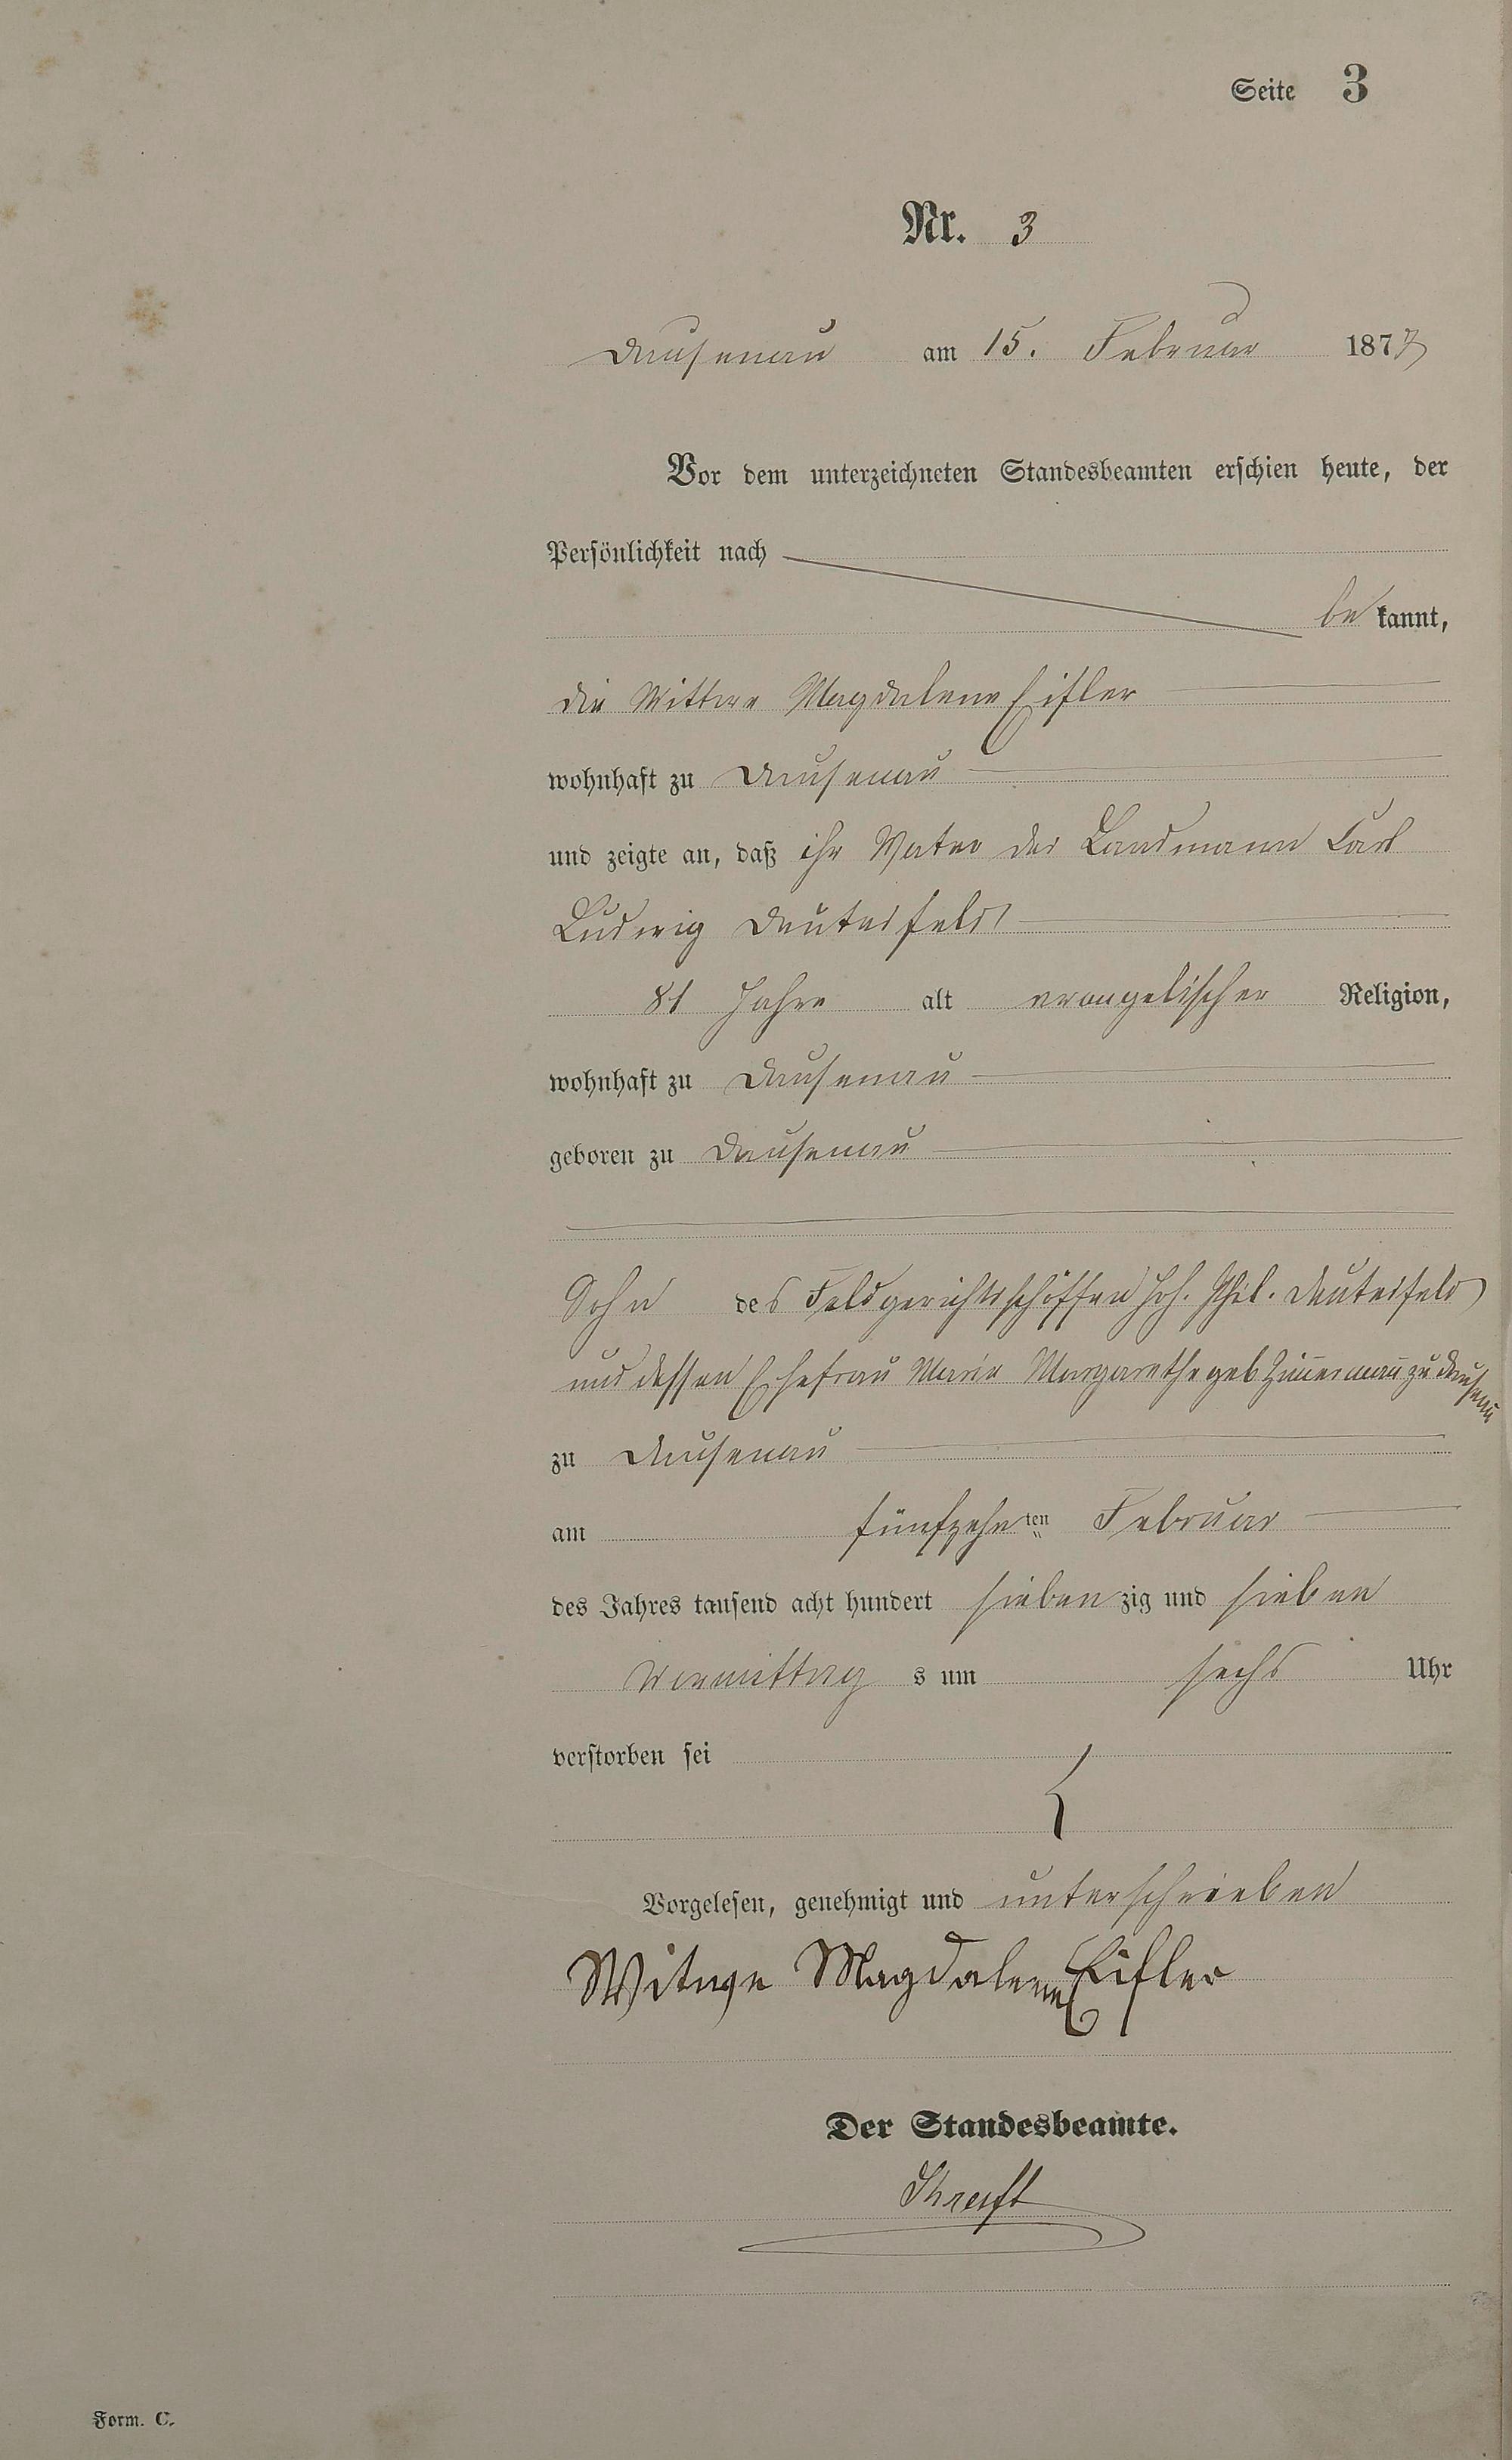 Seite 3
Nr. 3
Dausenau am 15. Februar 1877
Vor dem unterzeichneten Standesbeamten erschien heute, der
Persönlichkeit nach
be kannt,
die Wittwe Magdalene Eifler
wohnhaft zu Dausenau
und zeigte an, daß ihr Vater der Landmann Carl
Ludwig Deuterfeld
81 Jahre alt evangelischer Religion,
wohnhaft zu Dausenau
geboren zu Dausenau
Sohn des Feldgerichtsschöffen Joh. Phil. Deuterfeld
und dessen Ehefrau Maria Margarethe geb Zim̅erman̅ zu Dausenau
zu Dausenau
am fünfzehnten Februar
des Jahres tausend acht hundert sieben zig und sieben
Vormittag s um sechs Uhr
verstorben sei
Vorgelesen, genehmigt und unterschrieben
Witwe Magdalene Eifler
Der Standesbeamte.
Form. C.